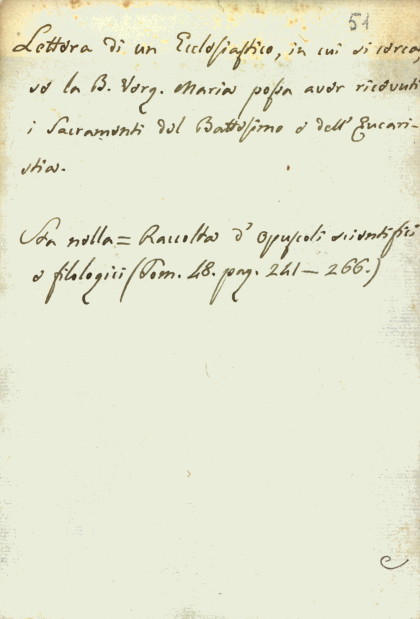 51
Lettera di un Ecclesiastico, in cui si cerca,
se la B. Verg. Maria possa aver ricevuti
i Sacramenti del Battesimo e dell' Eucari-
stia.
Sta nella = Raccolta d' opuscoli scientifici
e filologici (Tom. 48. pag. 241 — 266.)